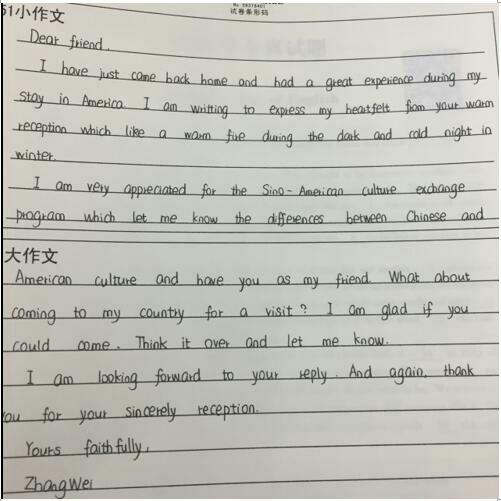 51小作文
试卷条形码
Dear friend,
I have just come back home and had a great experience during my
stay in America. I am writting to express my heatfelt from your warm
reception which like a warm fire during the dark and cold night in
winter.
I am very appreciated for the Sino-American culture exchange
program which let me know the differences between Chinese and
大作文
American culture and have you as my friend. What about
coming to my country for a visit? I am glad if you
could come. Think it over and let me know.
I am looking forward to your reply. And again, thank
you for your sincerely reception.
Yours faithfully,
Zhang Wei